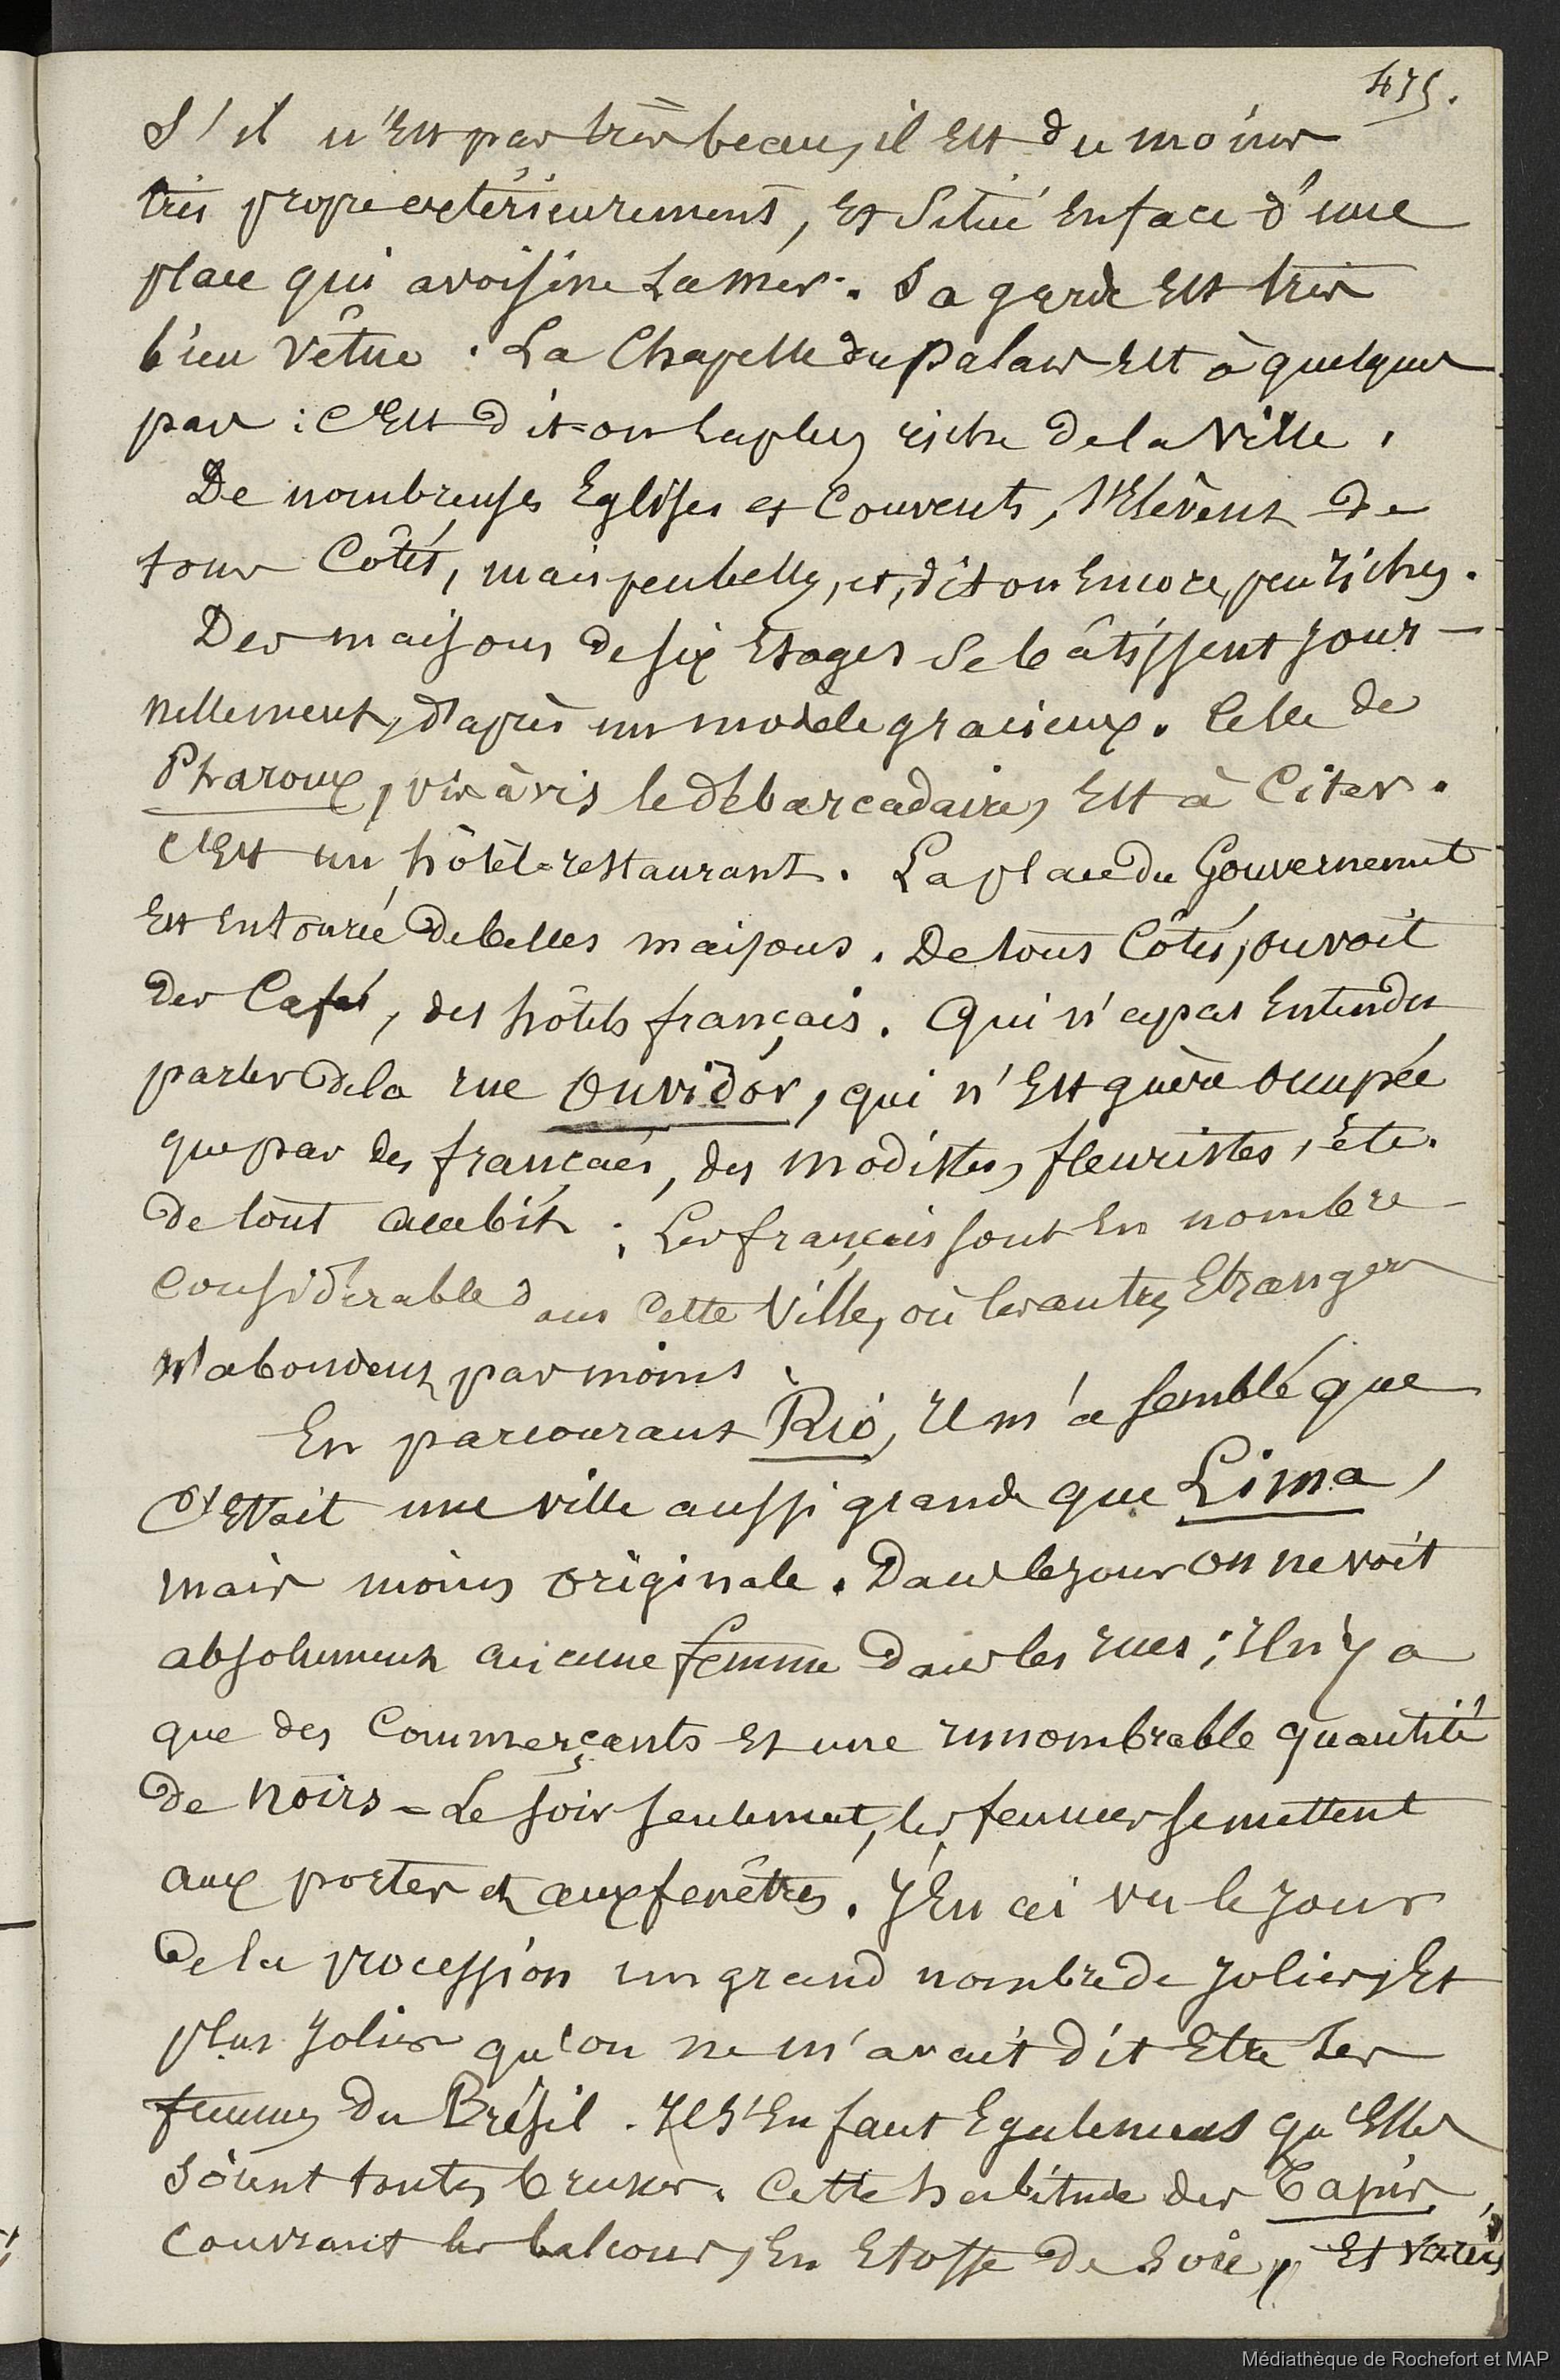 475.
S'il n'est pas très beau, il est du moins
très propre extérieurement, et situé en face d'une
place qui avoisine la mer. Sa garde est très
bien vêtue. La Chapelle du palais est à quelques
pas : c'est dit=on la plus riche de la ville.
De nombreuses Eglises et Couvents, s'élèvent de
tous Côtés, mais peu belles, et, dit on encore, peu riches.
Des maisons de six étages se bâtissent jour-
nellement, d'après un modèle gracieux. Celle de
Pharoux, vis à vis le débarcadaire, est à citer.
C'est un hôtel=restaurant. La place du Gouvernemt
est entourée de belles maisons. De tous Côtés, on voit
des Cafés, des hôtels français. Qui n'a pas entendu
parler de la rue Ouvidor, qui n'est guère occupée
que par des français, des modistes, fleuristes, etc.
de tout acabit ; Les français sont en nombre
considérable dans cette Ville, où les autres Etrangers
n'abondent pas moins.
En parcourant Rio, il m'a semblé que
c'était une ville aussi grande que Lima,
mais moins originale. Dans le jour on ne voit
absolument aucune femme dans les rues ; il n'y a
que des Commerçants et une innombrable quantité
de noirs = Le soir seulement, les femmes se mettent
aux portes et aux fenêtres. J'en ai vu le jour
de la procession un grand nombre de jolies, et
plus jolies qu'on ne m'avait dit être les
femmes du Brésil. Il s'en faut également qu'elles
soient toutes brunes. Cette habitude des Tapis,
couvrant les balcons, en étoffe de soie, et variés
Médiathèque de Rochefort et MAP